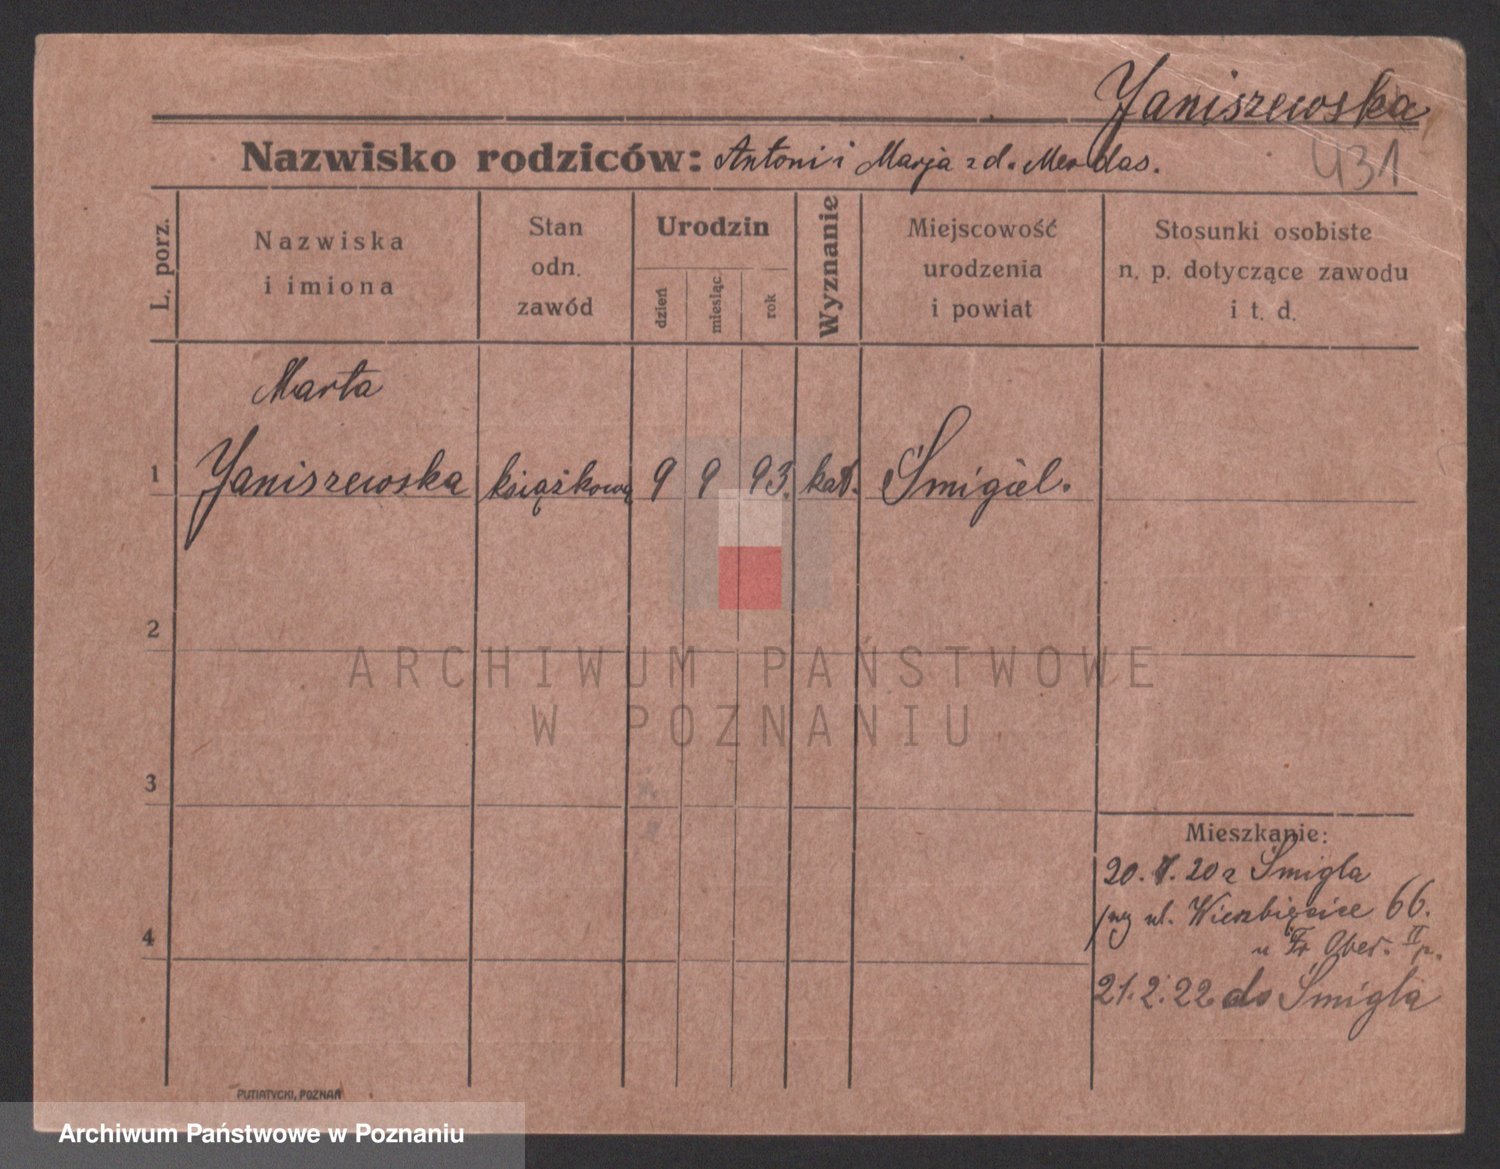 Janiszewska
Nazwisko rodziców: Antoni i Marja z d. Merdas.
431
L. porz.
Nazwiska
i imiona
Stan
odn.
zawód
Urodzin
dzień
miesiąc
rok
Wyznanie
Miejscowość
urodzenia
i powiat
Stosunki osobiste
n. p. dotyczące zawodu
i t. d.
Marta
1 Janiszewska książkowa 9 9 93. kat. Śmigiel.
2
ARCHIWUM PAŃSTWOWE
W POZNANIU
3
Mieszkanie:
20. 20 z Śmigla
ul. Wierzbięcice 66.
u Fr Ober. II p.
4
21.2.22 do Śmigla
PUTIATYCKI, POZNAŃ
Archiwum Państwowe w Poznaniu